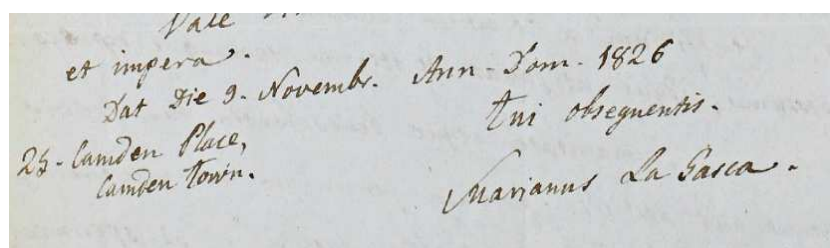 Vale
et impera.
Dat Die 9. Novembr. Ann. Dom. 1826
tui obsequentis.
25. Camden Place,
Camden Town.
Marianus La Gasca.